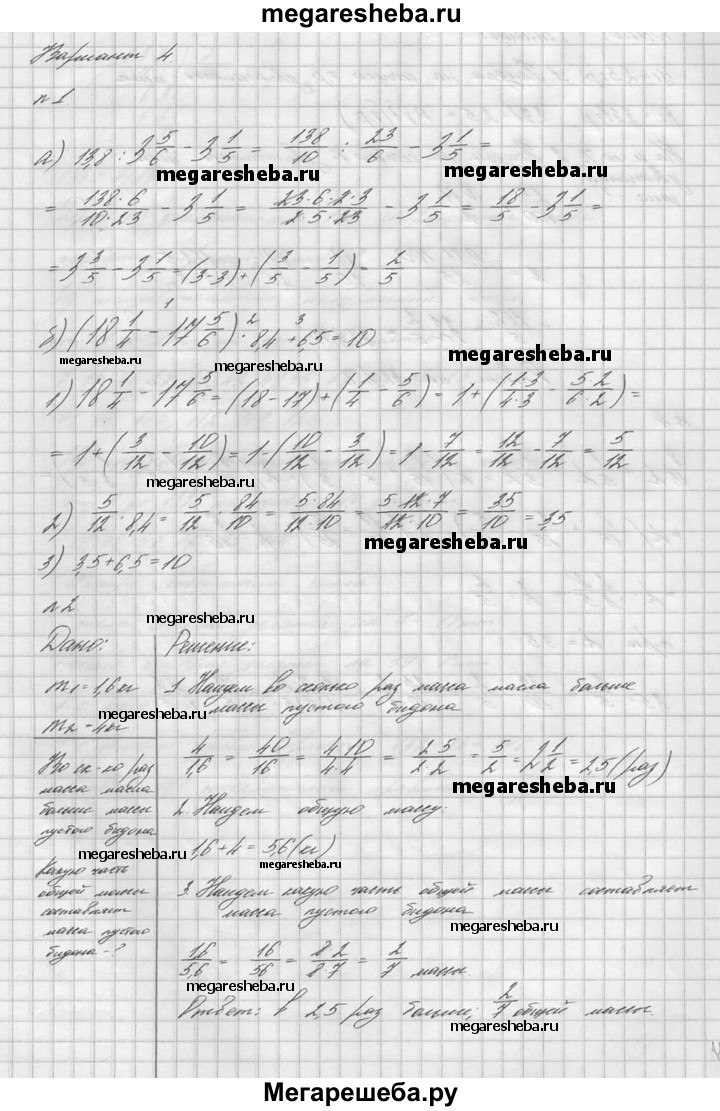 megaresheba.ru
Вариант 4.
n 1
а) 13,8 : 3 5/6 − 3 1/5 = 138/10 : 23/6 − 3 1/5 =
megaresheba.ru
megaresheba.ru
= 138·6/10·23 − 3 1/5 = 23·6·2·3/2·5·23 − 3 1/5 = 18/5 − 3 1/5 =
= 3 3/5 − 3 1/5 = (3−3) + (3/5 − 1/5) = 2/5
1 2 3
б) (18 1/4 − 17 5/6) · 8,4 + 6,5 = 10
megaresheba.ru
megaresheba.ru
megaresheba.ru
1) 18 1/4 − 17 5/6 = (18−17) + (1/4 − 5/6) = 1 + (1·3/4·3 − 5·2/6·2) =
= 1 + (3/12 − 10/12) = 1 − (10/12 − 3/12) = 1 − 7/12 = 12/12 − 7/12 = 5/12
megaresheba.ru
2) 5/12 · 8,4 = 5/12 · 84/10 = 5·84/12·10 = 5·12·7/12·10 = 35/10 = 3,5
megaresheba.ru
3) 3,5 + 6,5 = 10
n 2
megaresheba.ru
Дано:
m1 = 1,6 кг
m2 − 4 кг
megaresheba.ru
Во ск-ко раз
масса масла
больше массы
пустого бидона
megaresheba.ru
Какую часть
общей массы
составляет
масса пустого
бидона − ?
Решение:
1 Найдем во сколько раз масса масла больше
массы пустого бидона
4/1,6 = 40/16 = 4·10/4·4 = 2·5/2·2 = 5/2 = 2 1/2 = 2,5 (раз)
megaresheba.ru
2. Найдем общую массу:
1,6 + 4 = 5,6 (кг)
megaresheba.ru
3. Найдем какую часть общей массы составляет
масса пустого бидона
megaresheba.ru
1,6/5,6 = 16/56 = 8·2/8·7 = 2/7 массы.
megaresheba.ru
Ответ: в 2,5 раз больше; 2/7 общей массы.
Мегарешеба.ру